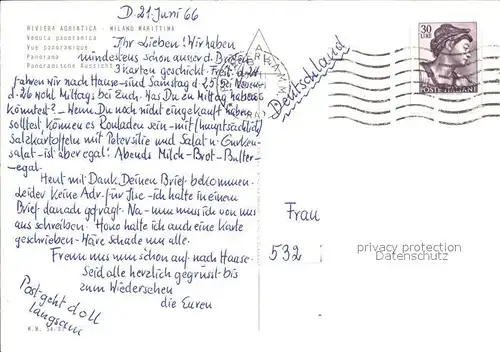 D. 21. Juni 66
RIVIERA ADRIATICA - MILANO MARITTIMA
Veduta panoramica
Vue panoramique
Panorama
Panoramische Aussicht
Ihr Lieben! Wir haben
mindestens schon ausser d. Briefen
3 Karten geschickt. Freit. d. 24.
fahren wir nach Hause - und Samstag d. 25. bei
d. 26. wohl Mittags bei Euch. Was Du zu Mittag haben
könntest? - Wenn Du noch nicht eingekauft haben
solltest können es Rouladen sein - mit (hauptsächlich)
Salzkartoffeln mit Petersilie und Salat u. Gurken-
salat - ist aber egal! Abends Milch - Brot - Butter -
- egal.
Heut mit Dank Deinen Brief bekommen.
Leider keine Adr. für Ilse - ich hatte in einem
Brief danach gefragt. Na - nun muss ich von uns
aus schreiben. Hono hatte ich auch eine Karte
geschrieben - Wäre Schade um alle.
Freun uns nun schon auf nach Hause.
Seid alle herzlich gegrüsst bis
zum Wiedersehen
die Euren
Post geht doll
langsam
Deutschland
30
LIRE
POSTE ITALIANE
Frau
532
privacy protection
Datenschutz